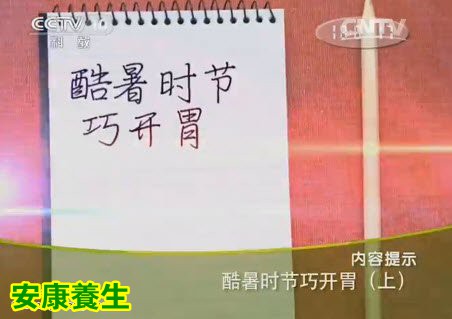 CCTV 10
科教
CNTV
酷暑时节
巧开胃
内容提示
酷暑时节巧开胃(上)
安康養生